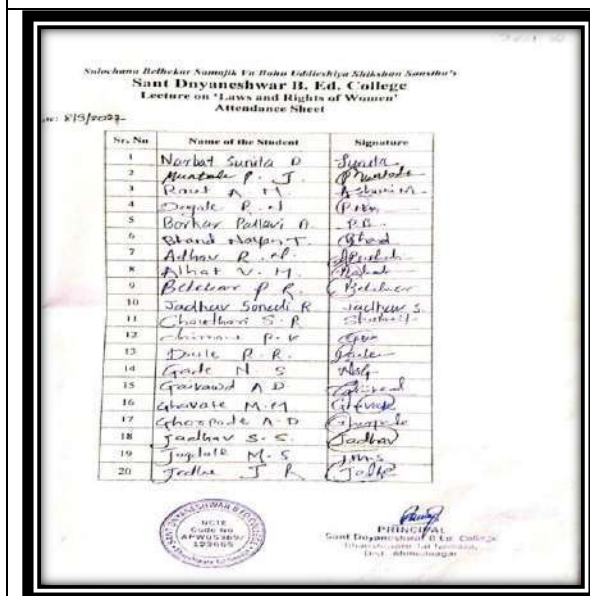 Sulochana Belhekar Samajik Va Bahu Uddieshiya Shikshan Sanstha's
Sant Dnyaneshwar B. Ed. College
Lecture on 'Laws and Rights of Women'
Attendance Sheet
Sr. No Name of the Student Signature
1 Narbat Sunita D Sunita
2 P. J.
3 Raut A M. Ashwini M.
4 Dugale R. N
5 Borkar Pallavi A. P.B.
6 Bhand Nayan T. Bhand
7 Adhav R. N.
8 Alhat V. M. Alhat
9 Belekar P R. Belekar
10 Jadhav Sonali R Jadhav S.
11 Chaudhari S. R
12 P. V
13 Darle P. R. Darle
14 Garle N. S NSG
15 Gaikawd A D
16 Ghavate M. M Ghavate
17 Ghorpade A-D Ghorpade
18 Jadhav S. S. Jadhav
19 Jagdale M. S J.M.S
20 Jadhe J R Jadhe
SANT DNYANESHWAR B ED COLLEGE
NCTE
Code No
APW05369/
123665
PRINCIPAL
Sant Dnyaneshwar B.Ed. College
Tal Newasa,
Dist. Ahmednagar